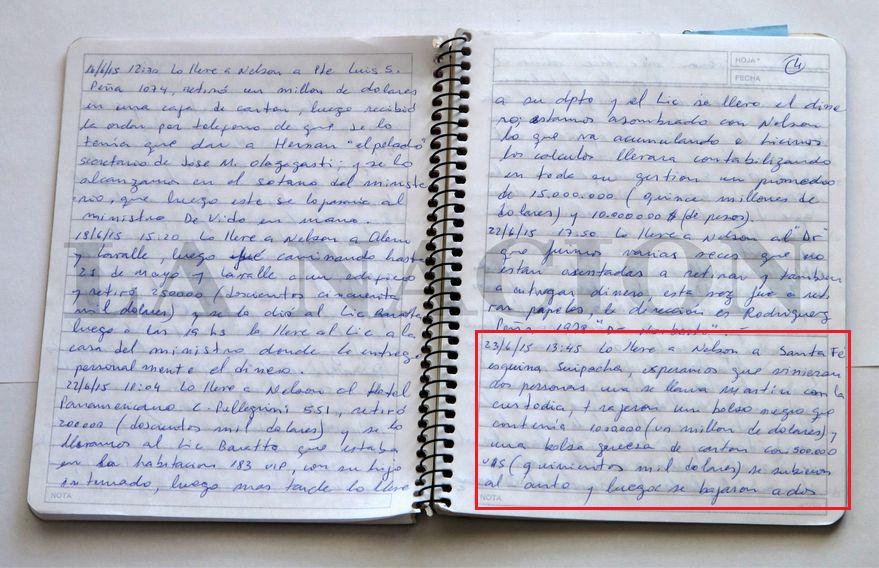 16/6/15 12:30 Lo lleve a Nelson a Pte Luis S.
Peña 1074, retiró un millon de dolares
en una caja de carton, luego recibió
la orden por telefono de que se lo
tenia que dar a Hernan "el pelado"
secretario de Jose M. Olazagasti; y se lo
alcanzamos en el sotano del ministe
rio, que luego este se lo al
ministro De Vido en mano.
18/6/15 15:20 Lo lleve a Nelson a Alem
y Lavalle, luego caminando hasta
25 de Mayo y Lavalle a un edificio
y retiró 250000 (doscientos cincuenta
mil dolares) y se lo dió al Lic Baratta
luego a las 19 hs lo lleve al Lic a la
casa del ministro donde le entrego
personalmente el dinero.
22/6/15 10:04 Lo lleve a Nelson al Hotel
Panamericano C. Pellegrini 551, retiró
200000 (doscientos mil dolares) y se lo
llevamos al Lic Baratta que estaba
en la habitacion 183 VIP, con su hijo
internado, luego mas tarde lo lleve
NOTA
HOJA Nº 4
FECHA
a su dpto y el Lic se llevo el dine
ro; estamos asombrado con Nelson
lo que va acumulando e hicimos
los calculos llevara contabilizando
en toda su gestion un promedio
de 15.000.000 (quince millones de
dolares) y 10.000000 $ (de pesos).
22/6/15 17:50 Lo lleve a Nelson al "Dr"
que fuimos varias veces que no
estan asentadas a retirar y tambien
a entregar dinero, esta vez fue a reti
rar papeles, la direccion es Rodriguez
Peña "Dr
23/6/15 13:45 Lo lleve a Nelson a Santa Fé
esquina Suipacha, esperamos que vinieran
dos personas una se llama Martin con la
custodia, trajeron un bolso negro que
contenia 1000000 (un millon de dolares) y
una bolsa gruesa de carton con 500.000
U$S (quinientos mil dolares) se subieron
al auto y luego se bajaron a dos
NOTA
LA NACION